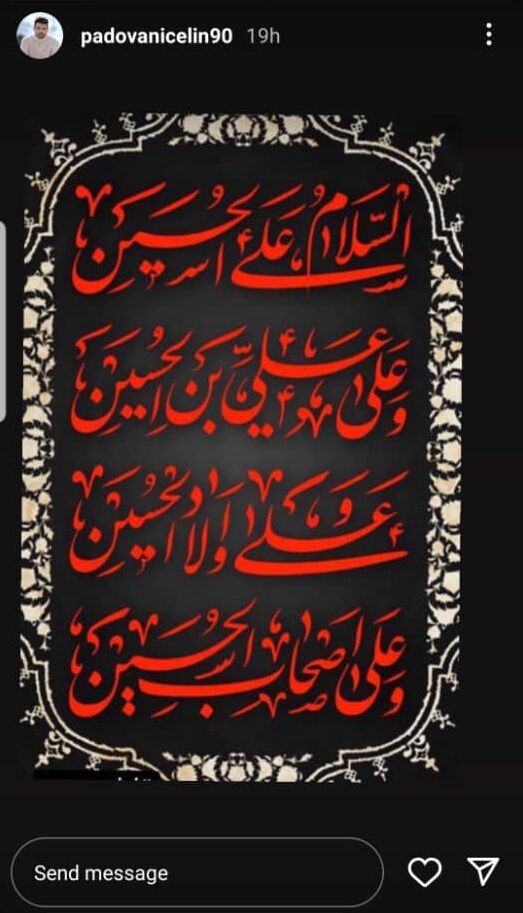 padovanicelin90 19h
السَّلامُ عَلَى الحُسَين
وَعَلى عَليِّ بنِ الحُسَين
وَعَلى اَولادِ الحُسَين
وَعَلى اَصحابِ الحُسَين
Send message